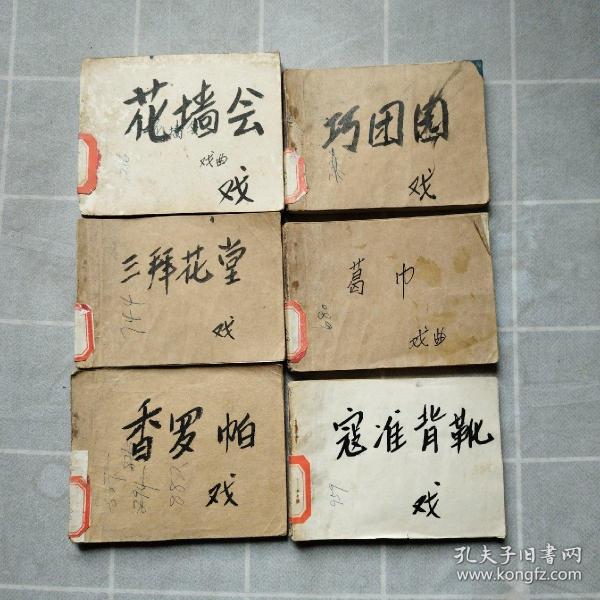 花墙会
戏曲
戏
巧团圆
戏
三拜花堂
戏
葛巾
戏曲
香罗帕
戏
寇准背靴
戏
959
孔夫子旧书网
www.kongfz.com